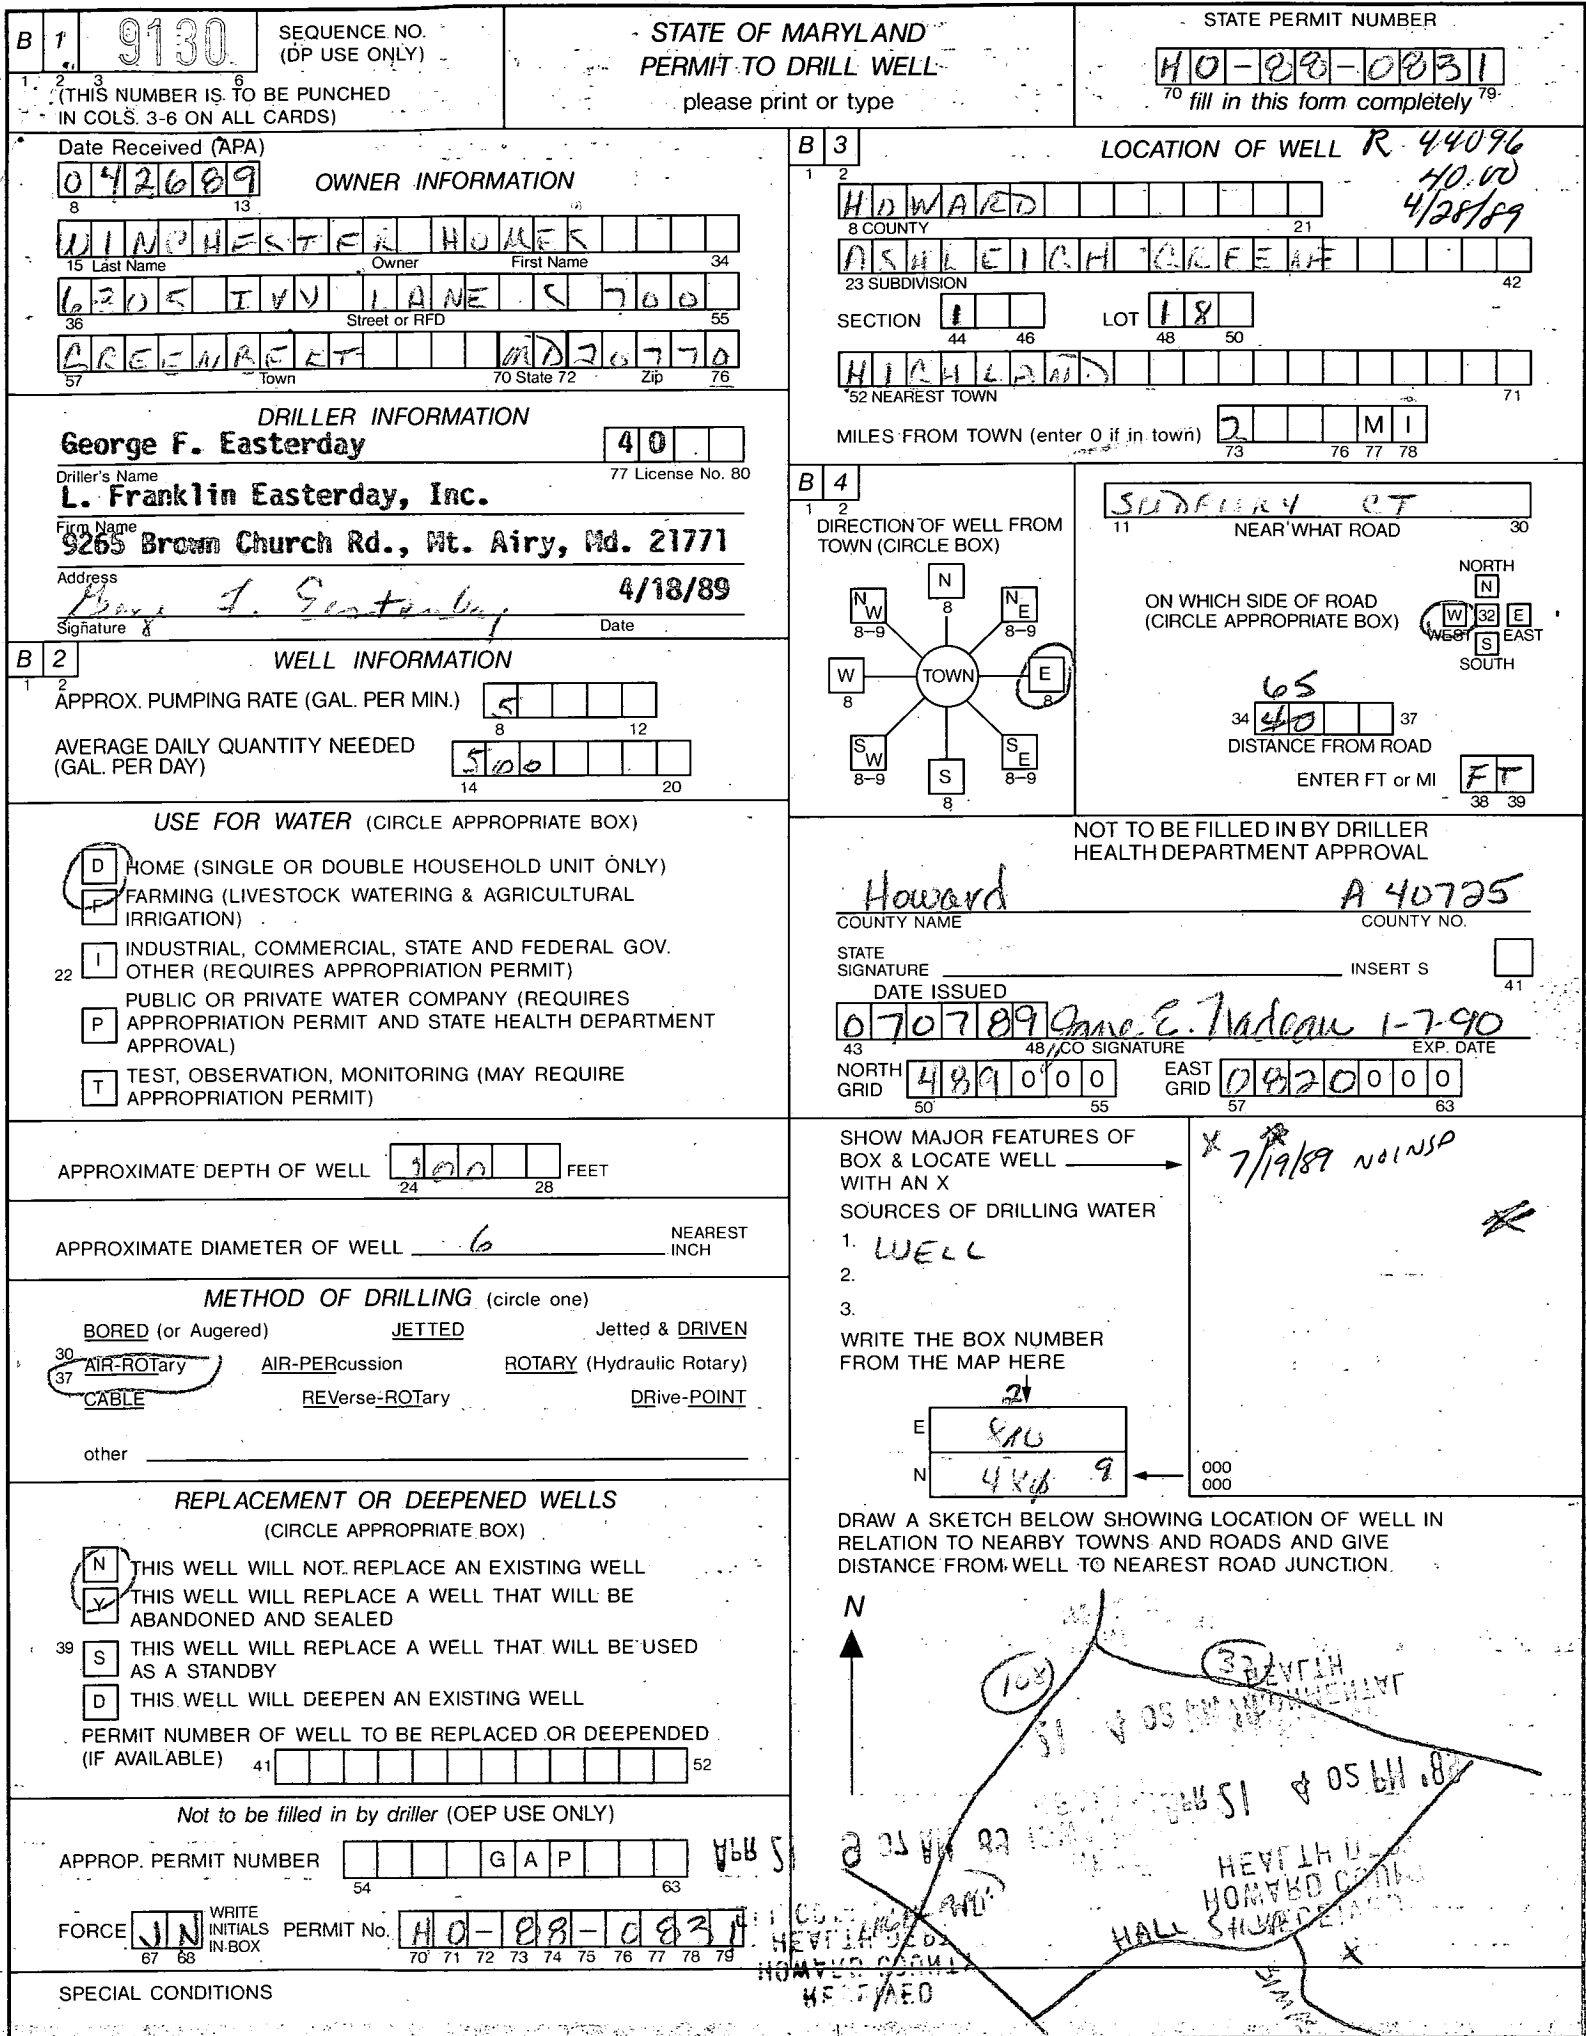 B 1 9130 SEQUENCE NO. (DP USE ONLY)
1 2 3 6
(THIS NUMBER IS TO BE PUNCHED
IN COLS. 3-6 ON ALL CARDS)
STATE OF MARYLAND
PERMIT TO DRILL WELL
please print or type
STATE PERMIT NUMBER
HO-88-0831
70 fill in this form completely 79
Date Received (APA)
042689
8 13
OWNER INFORMATION
WINCHESTER HOMES
15 Last Name Owner First Name 34
6205 IVY LANE S 700
36 Street or RFD 55
GREENBELT MD 20770
57 Town 70 State 72 Zip 76
DRILLER INFORMATION
George F. Easterday 40
Driller's Name 77 License No. 80
L. Franklin Easterday, Inc.
Firm Name
9265 Brown Church Rd., Mt. Airy, Md. 21771
Address
George F. Easterday 4/18/89
Signature Date
B 2 WELL INFORMATION
1 2
APPROX. PUMPING RATE (GAL. PER MIN.) 5
8 12
AVERAGE DAILY QUANTITY NEEDED
(GAL. PER DAY) 500
14 20
USE FOR WATER (CIRCLE APPROPRIATE BOX)
D HOME (SINGLE OR DOUBLE HOUSEHOLD UNIT ONLY)
F FARMING (LIVESTOCK WATERING & AGRICULTURAL
IRRIGATION)
22 I INDUSTRIAL, COMMERCIAL, STATE AND FEDERAL GOV.
OTHER (REQUIRES APPROPRIATION PERMIT)
P PUBLIC OR PRIVATE WATER COMPANY (REQUIRES
APPROPRIATION PERMIT AND STATE HEALTH DEPARTMENT
APPROVAL)
T TEST, OBSERVATION, MONITORING (MAY REQUIRE
APPROPRIATION PERMIT)
APPROXIMATE DEPTH OF WELL 300 FEET
24 28
APPROXIMATE DIAMETER OF WELL 6 NEAREST
INCH
METHOD OF DRILLING (circle one)
BORED (or Augered) JETTED Jetted & DRIVEN
30 AIR-ROTary AIR-PERcussion ROTARY (Hydraulic Rotary)
37
CABLE REVerse-ROTary DRive-POINT
other
REPLACEMENT OR DEEPENED WELLS
(CIRCLE APPROPRIATE BOX)
N THIS WELL WILL NOT REPLACE AN EXISTING WELL
Y THIS WELL WILL REPLACE A WELL THAT WILL BE
ABANDONED AND SEALED
39 S THIS WELL WILL REPLACE A WELL THAT WILL BE USED
AS A STANDBY
D THIS WELL WILL DEEPEN AN EXISTING WELL
PERMIT NUMBER OF WELL TO BE REPLACED OR DEEPENED
(IF AVAILABLE) 41 52
Not to be filled in by driller (OEP USE ONLY)
APPROP. PERMIT NUMBER GAP
54 63
FORCE JN WRITE INITIALS IN BOX PERMIT No. HO-88-0831
67 68 70 71 72 73 74 75 76 77 78 79
SPECIAL CONDITIONS
B 3 LOCATION OF WELL R 44096
1 2 40.00
4/28/89
HOWARD
8 COUNTY 21
ASHLEIGH GREENE
23 SUBDIVISION 42
SECTION 1 LOT 18
44 46 48 50
HIGHLAND
52 NEAREST TOWN 71
MILES FROM TOWN (enter 0 if in town) 2 MI
73 76 77 78
B 4
1 2
DIRECTION OF WELL FROM
TOWN (CIRCLE BOX)
N 8
NW 8-9 NE 8-9
W 8 TOWN E 8
SW 8-9 SE 8-9
S 8
SUDBURY CT
11 NEAR WHAT ROAD 30
ON WHICH SIDE OF ROAD
(CIRCLE APPROPRIATE BOX)
NORTH
N
W 32 E
WEST S EAST
SOUTH
65
34 40 37
DISTANCE FROM ROAD
ENTER FT or MI FT
38 39
NOT TO BE FILLED IN BY DRILLER
HEALTH DEPARTMENT APPROVAL
Howard A 40725
COUNTY NAME COUNTY NO.
STATE
SIGNATURE INSERT S
41
DATE ISSUED
070789 Jane E. Nadeau 1-7-90
43 48 CO SIGNATURE EXP. DATE
NORTH GRID 489000 EAST GRID 0820000
50 55 57 63
SHOW MAJOR FEATURES OF
BOX & LOCATE WELL
WITH AN X
X 7/19/89 NO INSP
X
SOURCES OF DRILLING WATER
1. WELL
2.
3.
WRITE THE BOX NUMBER
FROM THE MAP HERE
2
E 810
N 488 9
000
000
DRAW A SKETCH BELOW SHOWING LOCATION OF WELL IN
RELATION TO NEARBY TOWNS AND ROADS AND GIVE
DISTANCE FROM WELL TO NEAREST ROAD JUNCTION.
N
108
HALL SHOP
X
APR 21 4 02 PM '89
HEALTH
HOWARD COUNTY
RECEIVED
APR 21 9 07 AM 89
HEALTH DEPT
HOWARD COUNTY
RECEIVED